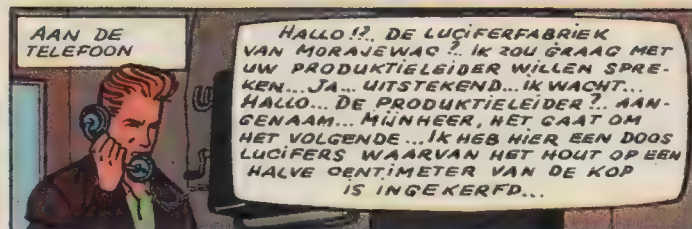 AAN DE
TELEFOON
HALLO!?.. DE LUCIFERFABRIEK
VAN MORAJEWAG?.. IK ZOU GRAAG MET
UW PRODUKTIELEIDER WILLEN SPRE-
KEN... JA... UITSTEKEND... IK WACHT...
HALLO... DE PRODUKTIELEIDER?.. AAN-
GENAAM... MIJNHEER, HET GAAT OM
HET VOLGENDE... IK HEB HIER EEN DOOS
LUCIFERS WAARVAN HET HOUT OP EEN
HALVE CENTIMETER VAN DE KOP
IS INGEKERFD...